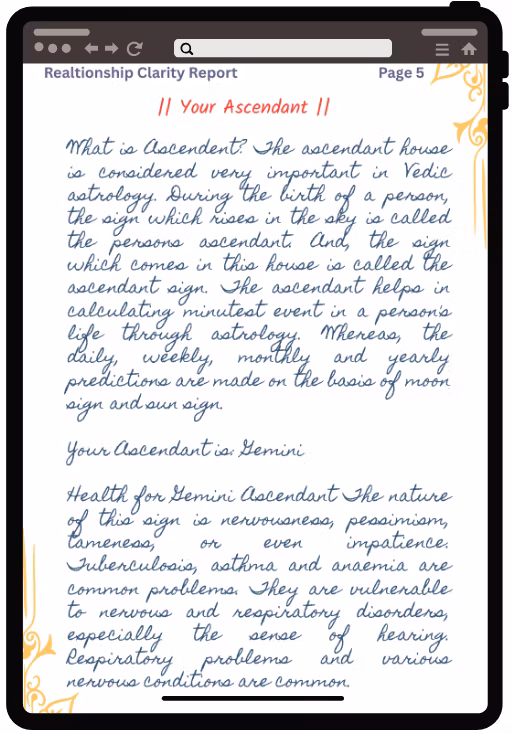 Realtionship Clarity Report Page 5
|| Your Ascendant ||
What is Ascendent? The ascendant house
is considered very important in Vedic
astrology. During the birth of a person,
the sign which rises in the sky is called
the persons ascendant. And, the sign
which comes in this house is called the
ascendant sign. The ascendant helps in
calculating minutest event in a person's
life through astrology. Whereas, the
daily, weekly, monthly and yearly
predictions are made on the basis of moon
sign and sun sign.
Your Ascendant is: Gemini
Health for Gemini Ascendant The nature
of this sign is nervousness, pessimism,
tameness, or even impatience.
Tuberculosis, asthma and anaemia are
common problems. They are vulnerable
to nervous and respiratory disorders,
especially the sense of hearing.
Respiratory problems and various
nervous conditions are common.